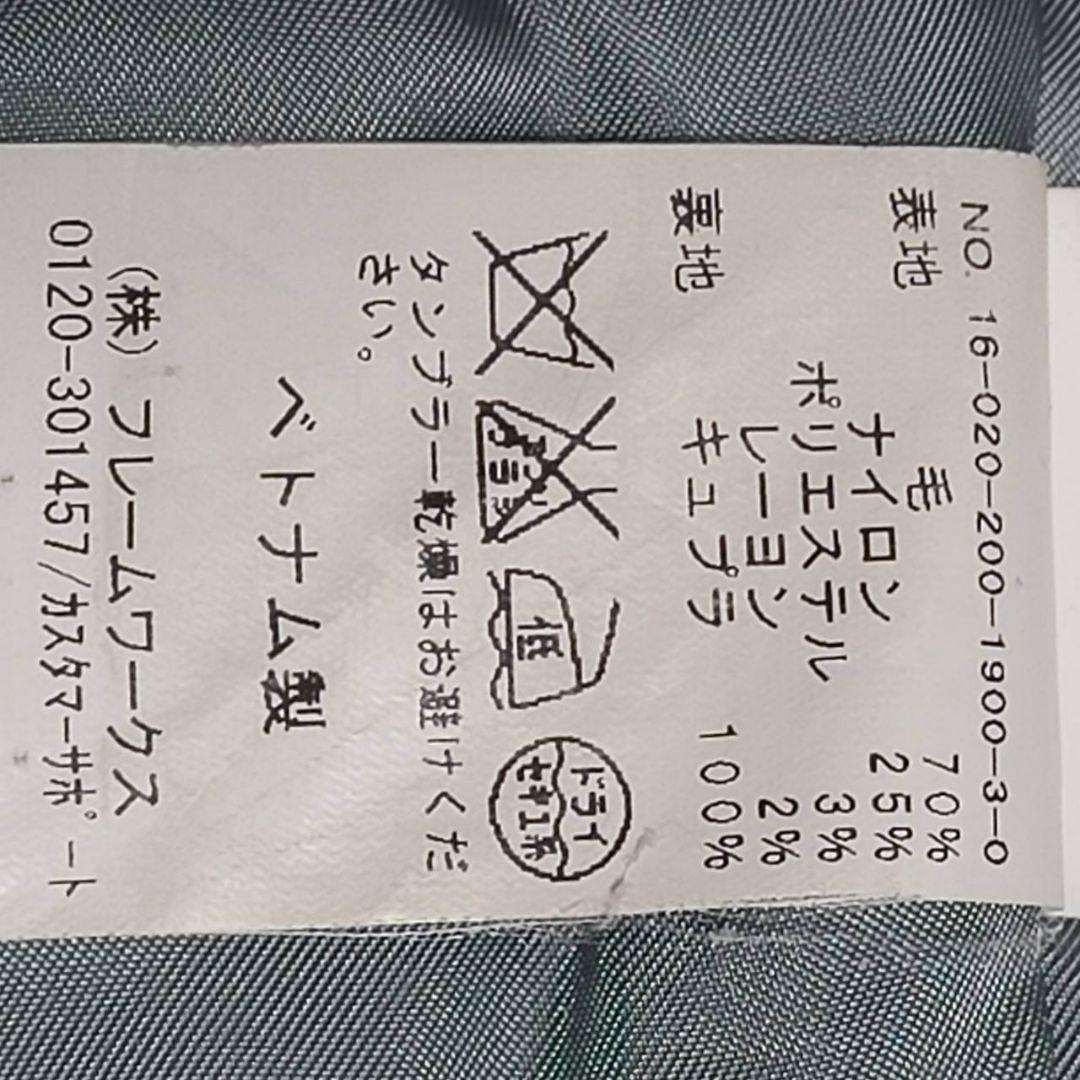 NO. 16-020-200-1900-3-0
表地
毛 70%
ナイロン 25%
ポリエステル 3%
レーヨン 2%
裏地
キュプラ 100%
エンソサラシ
低
ドライ
セキユ系
タンブラー乾燥はお避けくだ
さい。
ベトナム製
(株)フレームワークス
0120-301457/カスタマーサポート